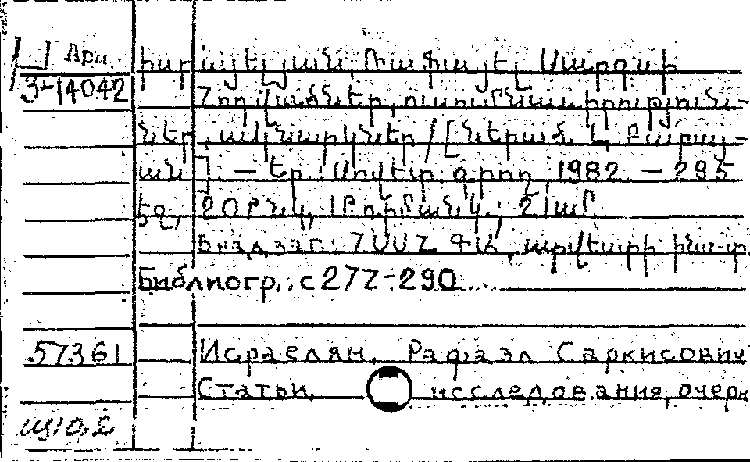 Арм
3-14042
Իսրայելյան Ռաֆայել Սարգսի
Հոդվածներ, ուսումնասիրություն-
ներ, ակնարկներ / [Ներած. և
ան]. – Եր. Սովետ. գրող, 1982. – 295
էջ, 21սմ.
В надзаг.: ՀՍՍՀ ԳԱ, արվեստի ինստ.
Библиогр.: с 272-290
57361 Исраелян, Рафаэл Саркисович
Статьи, исследования, очерк